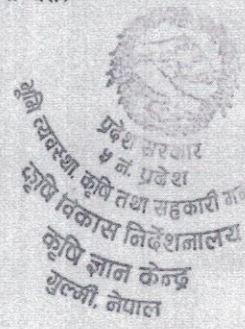 प्रदेश सरकार
५ नं. प्रदेश
भूमि व्यवस्था, कृषि तथा सहकारी
कृषि विकास निर्देशनालय
कृषि ज्ञान केन्द्र
गुल्मी, नेपाल